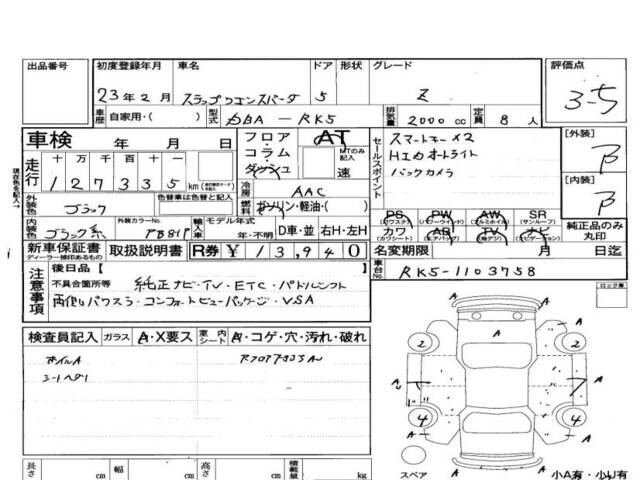 出品番号 初度登録年月 車名 ドア 形状 グレード 評価点
23年2月 ステップワゴンスパーダ 5 Z 3-5
車歴 自家用・( ) 型式 DBA-RK5 排気量 2000cc 定員 8人
車検 年 月 日 フロア・コラム・ダッシュ AT MTのみ記入 速
セールスポイント スマートキー×2
HIDオートライト
バックカメラ
[外装] B
[内装] B
走行 十万千百十一
127335km
冷房 AAC
外装色 ブラック 色替車は色替と記入 燃料 ガソリン・軽油・( )
内装色 ブラック系 外装カラーNo. 輸入車 モデル年式 年・不明 D車・並 右H・左H
PS PW AW SR
(パワステ) (パワーウインド) (アルミホイル) (サンルーフ)
カワ AB TV ナビ
(カワシート) (エアバッグ) (ナビゲーション)
純正品のみ丸印
現在色を記入→
新車保証書 取扱説明書 R券 ¥13,940 名変期限 月 日迄
ディーラー捺印あるもの
車台No. RK5-1103758
注意事項 後日品【
不具合箇所等 純正ナビ・TV・ETC・パドルシフト
両側パワスラ・コンフォートビューパッケージ・VSA
ロック車
検査員記入 ガラス A・X要ス 室内シート A・コゲ・穴・汚れ・破れ
ホイルA
A
A A
2 2
A A A
4 4
A A
A
スペア 小A有・小U有
長さ cm 幅 cm 高さ cm 積載量 kg